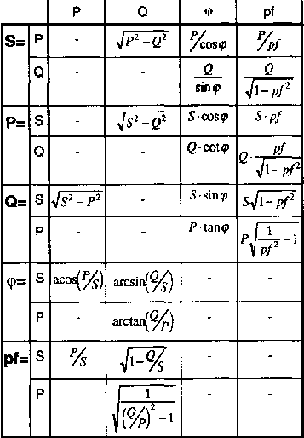 P Q φ pf
S= P - √P²-Q² P/cosφ P/pf
Q - - Q/sinφ Q/√1-pf²
P= S - √S²-Q² S·cosφ S·pf
Q - - Q·cotφ Q·pf/√1-pf²
Q= S √S²-P² - S·sinφ S√1-pf²
P - - P·tanφ P√1/pf²-1
φ= S acos(P/S) arcsin(Q/S) - -
P - arctan(Q/P) - -
pf= S P/S √1-Q/S - -
P - √1/(Q/P)²-1 - -